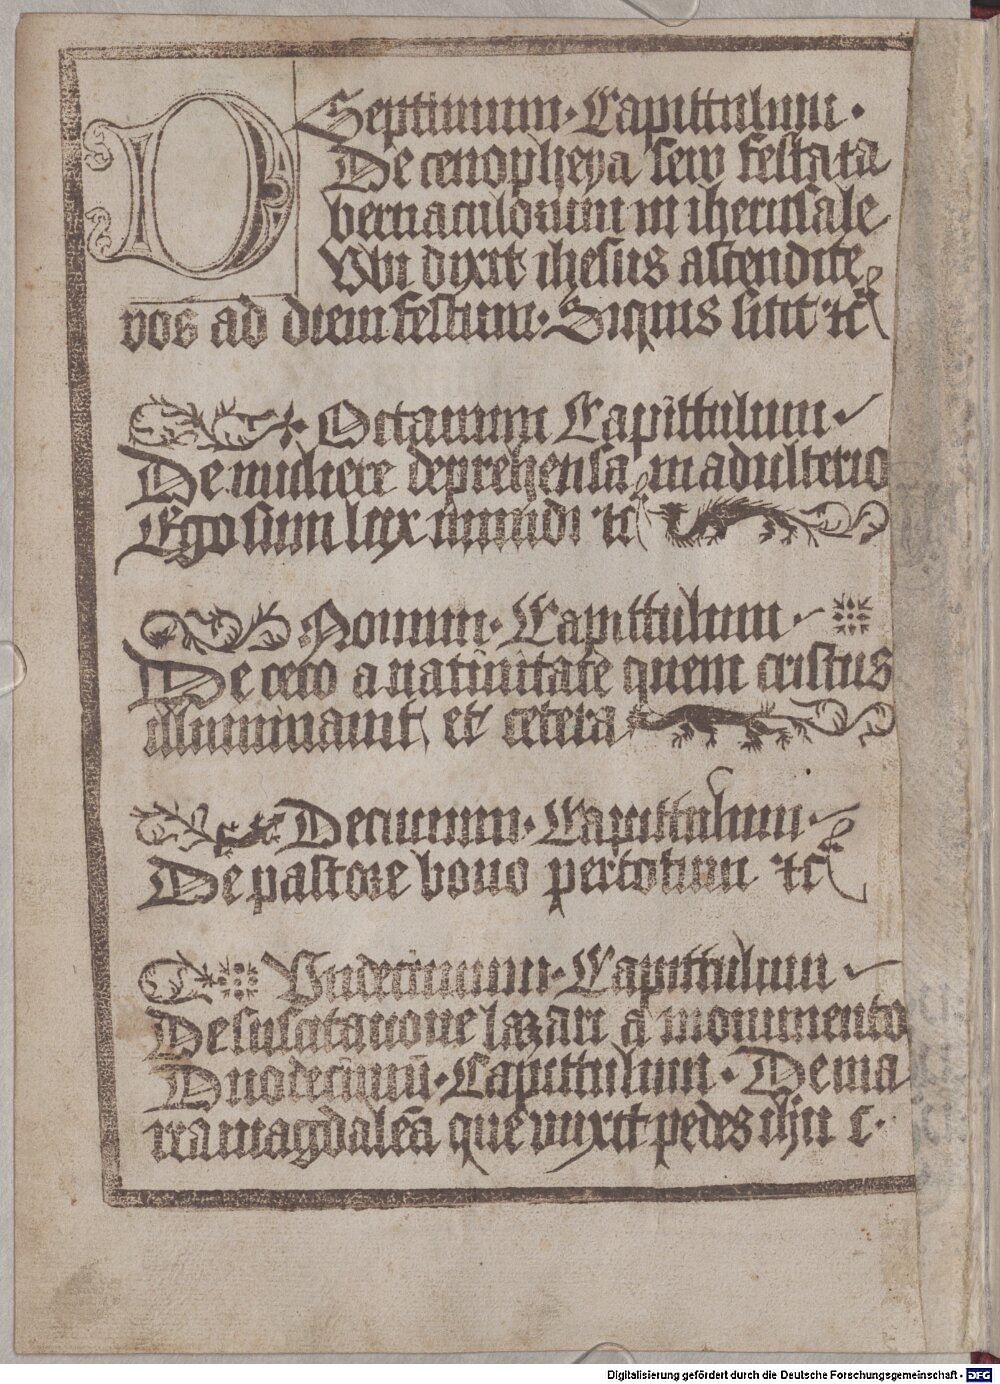 D
Septimum · Capittulum ·
De cenopheya sew festa ta
bernaculorum in iherusale
Vbi dyxit ihesus ascendite
vos ad diem festum · Siquis sitit ⁊c
Octauum Capittulum
De muliere deprehensa in adulterio
Ego sum lux mundi ⁊c
Nonum · Capittulum ·
De ceco a natiuitate quem cristus
illuminauit et cetera
Decimum · Capittulum ·
De pastore bono per totum ⁊c
Vndecimum · Capittulum
De suscitatione lazari a monumento
Duodecimū · Capittulum · De ma
ria magdalēa que vnxit pedes ihu c ·
Digitalisierung gefördert durch die Deutsche Forschungsgemeinschaft - DFG